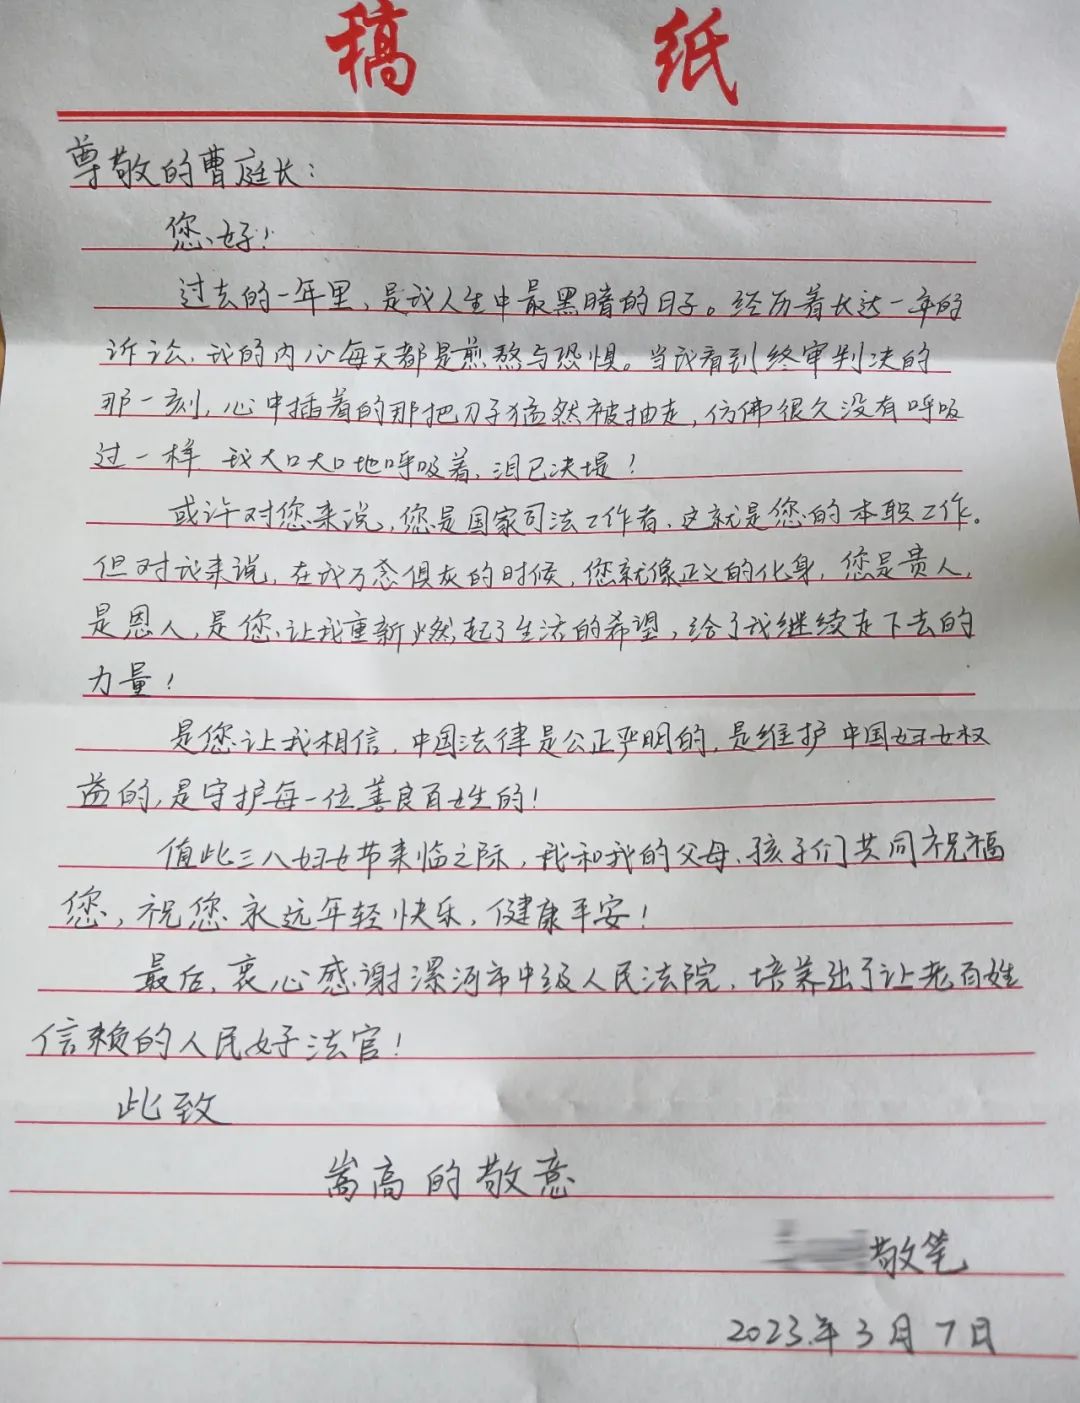 稿 纸
尊敬的曹庭长：
您好！
过去的一年里，是我人生中最黑暗的日子。经历着长达一年的
诉讼，我的内心每天都是煎熬与恐惧。当我看到终审判决的
那一刻，心中插着的那把刀子猛然被抽走，仿佛很久没有呼吸
过一样 我大口大口地呼吸着，泪已决堤！
或许对您来说，您是国家司法工作者，这就是您的本职工作。
但对我来说，在我万念俱灰的时候，您就像正义的化身，您是贵人，
是恩人，是您让我重新燃起了生活的希望，给了我继续走下去的
力量！
是您让我相信，中国法律是公正严明的，是维护中国妇女权
益的，是守护每一位善良百姓的！
值此三八妇女节来临之际，我和我的父母、孩子们共同祝福
您，祝您永远年轻快乐，健康平安！
最后，衷心感谢漯河市中级人民法院，培养出了让老百姓
信赖的人民好法官！
此致
嵩高的敬意
敬笔
2023年3月7日